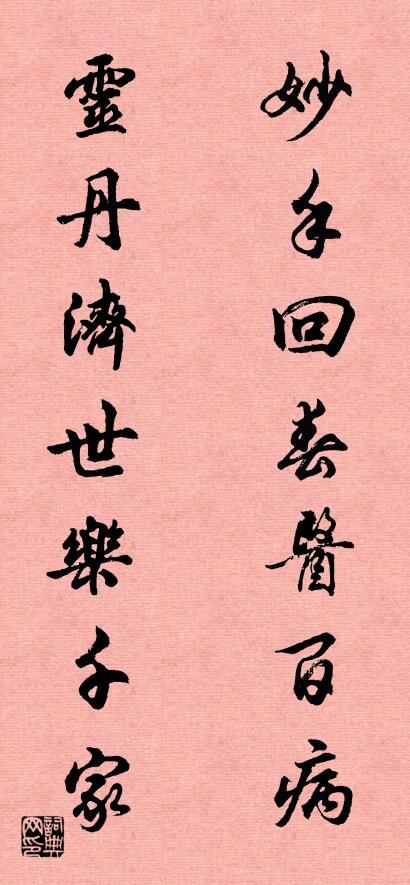 妙手回春醫百病
靈丹濟世樂千家
詞典网印